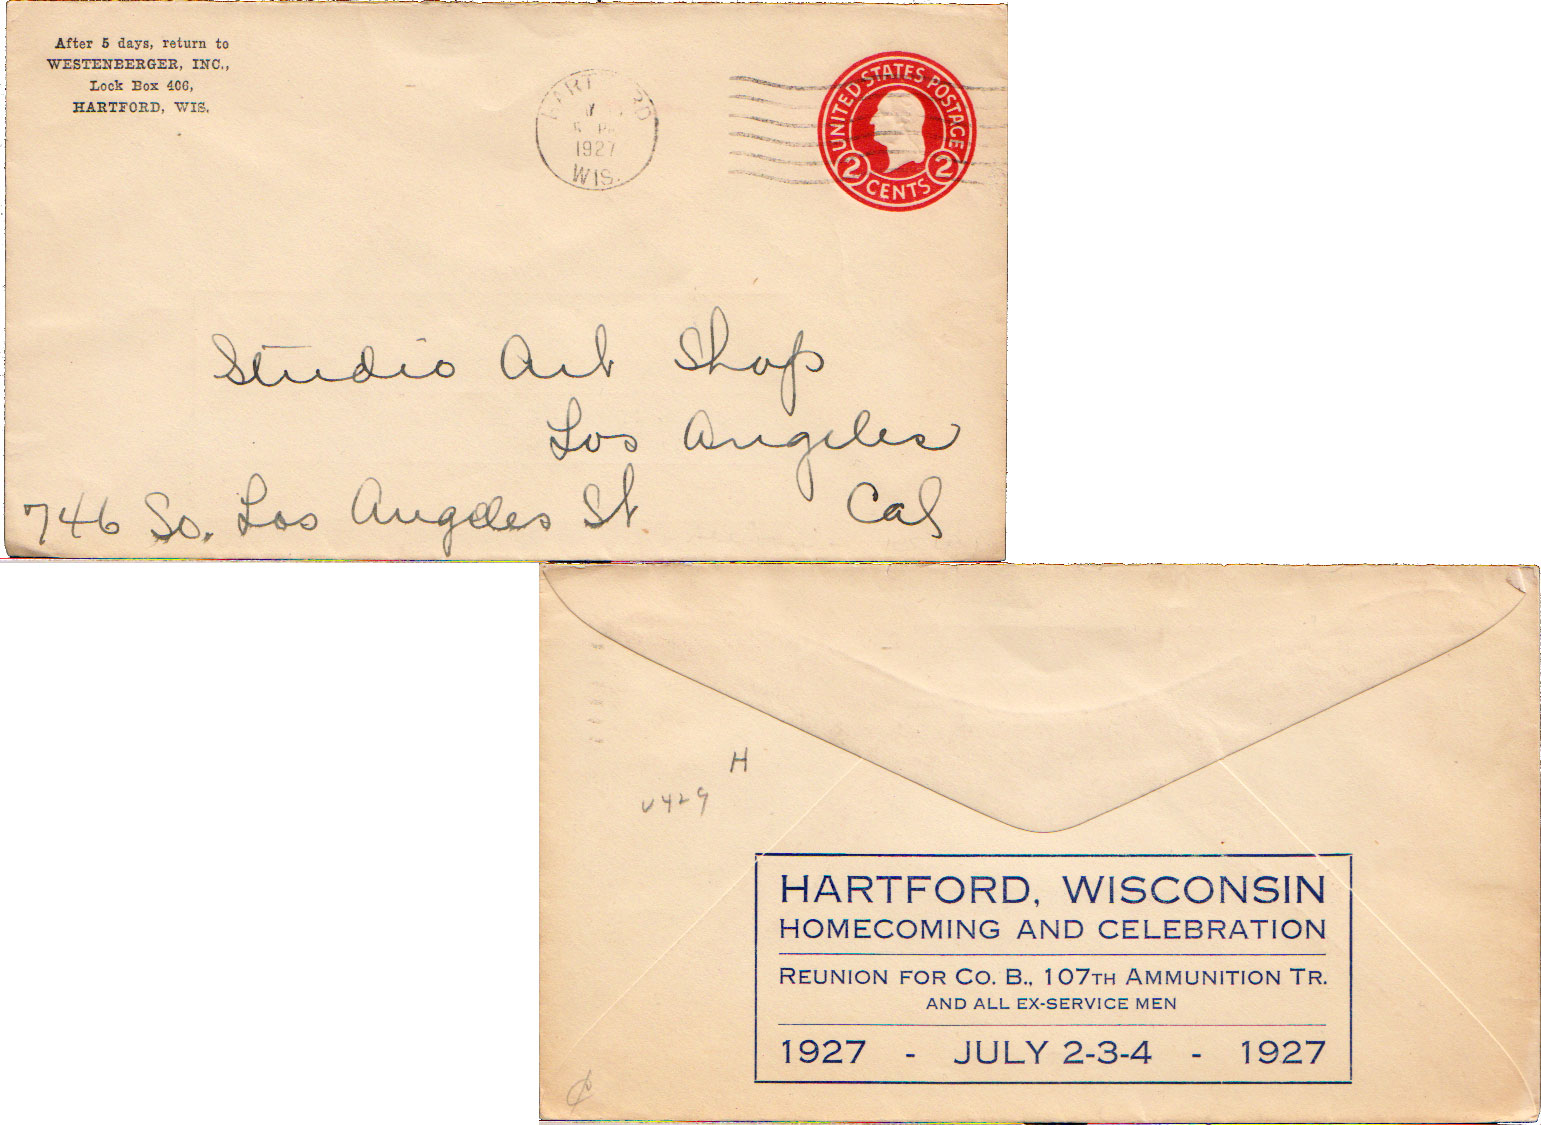 After 5 days, return to
WESTENBERGER, INC.,
Lock Box 406,
HARTFORD, WIS.
1927
WIS.
UNITED STATES POSTAGE
2 CENTS 2
Studio Art Shop
Los Angeles
746 So. Los Angeles St Cal
H
HARTFORD, WISCONSIN
HOMECOMING AND CELEBRATION
REUNION FOR CO. B., 107TH AMMUNITION TR.
AND ALL EX-SERVICE MEN
1927 - JULY 2-3-4 - 1927